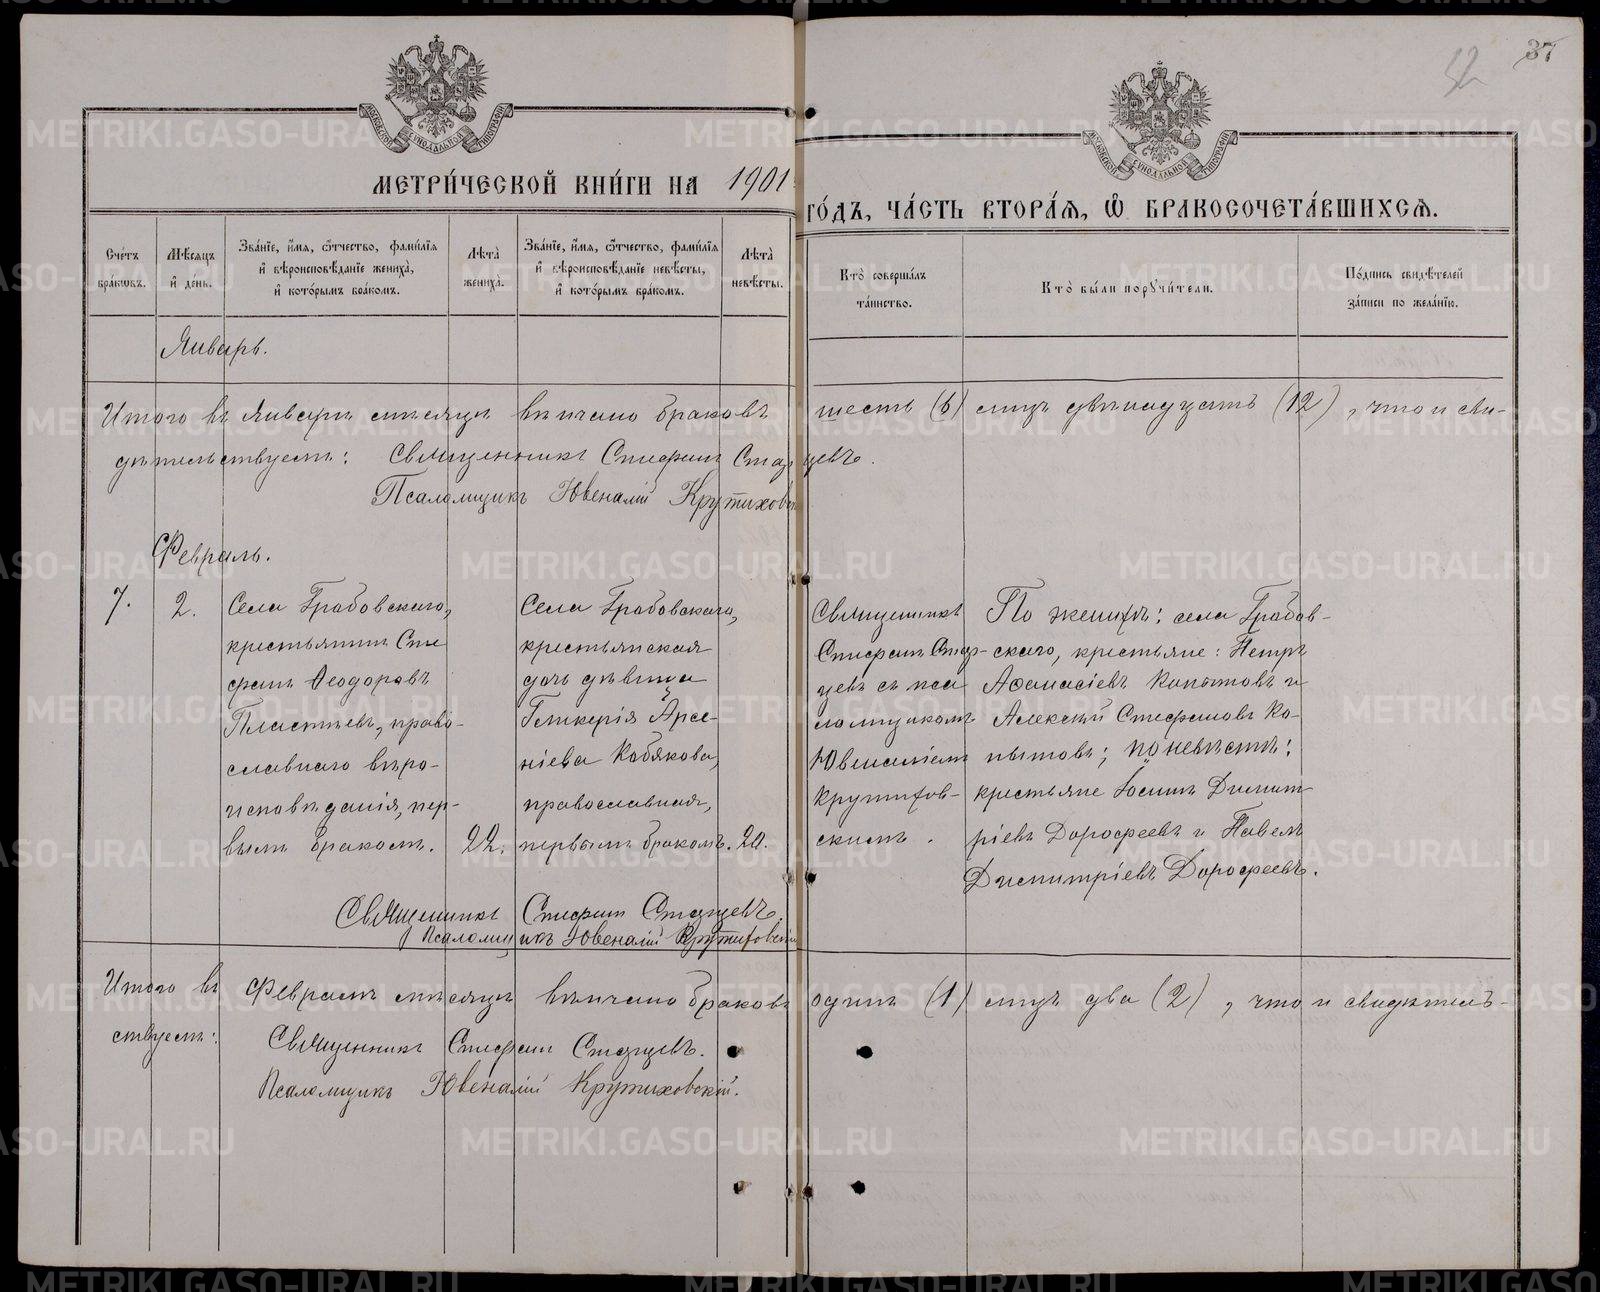 37
52
МОСКОВСКОЙ СѴНОДАЛЬНОЙ ТИПОГРАФІИ
МОСКОВСКОЙ СѴНОДАЛЬНОЙ ТИПОГРАФІИ
МЕТРИ́ЧЕСКОЙ КНИ́ГИ НА 1901
ГО́ДЪ, ЧА́СТЬ ВТОРА́Я, Ѽ БРАКОСОЧЕТА́ВШИХСЯ.
Сче́тъ бра́ковъ.
Мѣ́сяцъ и҆ де́нь.
Зва́нїе, и҆́мя, ѻ҆́тчество, фами́лїя и҆ вѣроисповѣ́данїе жениха̀, и҆ кото́рымъ бра́комъ.
Лѣ́та жениха̀.
Зва́нїе, и҆́мя, ѻ҆́тчество, фами́лїя и҆ вѣроисповѣ́данїе невѣ́сты, и҆ кото́рымъ бра́комъ.
Лѣ́та невѣ́сты.
Кто̀ соверша́лъ та́инство.
Кто̀ бы́ли поручи́тели.
По́дпись свидѣ́телей за́писи по жела́нїю.
Январь.
Итого въ Январѣ мѣсяцѣ вѣнчано браковъ шесть (6) лицъ двѣнадцать (12), что и сви-
дѣтельствуемъ: Священникъ Стефанъ Старцевъ.
Псаломщикъ Ювеналій Крутиховскій
Февраль.
7.
2.
Села Грабовскаго,
крестьянинъ Сте
фанъ Ѳеодоровъ
Пластѣевъ, право-
славнаго вѣро-
исповѣданія, пер-
вымъ бракомъ.
22.
Села Грабовскаго,
крестьянская
дочь дѣвица
Гликерія Арсе-
ніева Кобякова,
православная,
первымъ бракомъ.
20.
Священникъ
Стефанъ Стар-
цевъ съ пса
ломщикомъ
Ювеналіемъ
Крутихов-
скимъ.
По женихѣ: села Грабов-
скаго, крестьяне: Петръ
Аѳанасіевъ Копытовъ и
Алексѣй Стефановъ Ко-
пытовъ; по невѣстѣ:
крестьяне Іосифъ Димит-
ріевъ Дорофеевъ и Павелъ
Димитріевъ Дорофеевъ.
Священникъ Стефанъ Старцевъ.
Псаломщикъ Ювеналій Крутиховскій
Итого въ Февралѣ мѣсяцѣ вѣнчано браковъ одинъ (1) лицъ два (2), что и свидѣтель-
ствуемъ:
Священникъ Стефанъ Старцевъ.
Псаломщикъ Ювеналій Крутиховскій.
METRIKI.GASO-URAL.RU